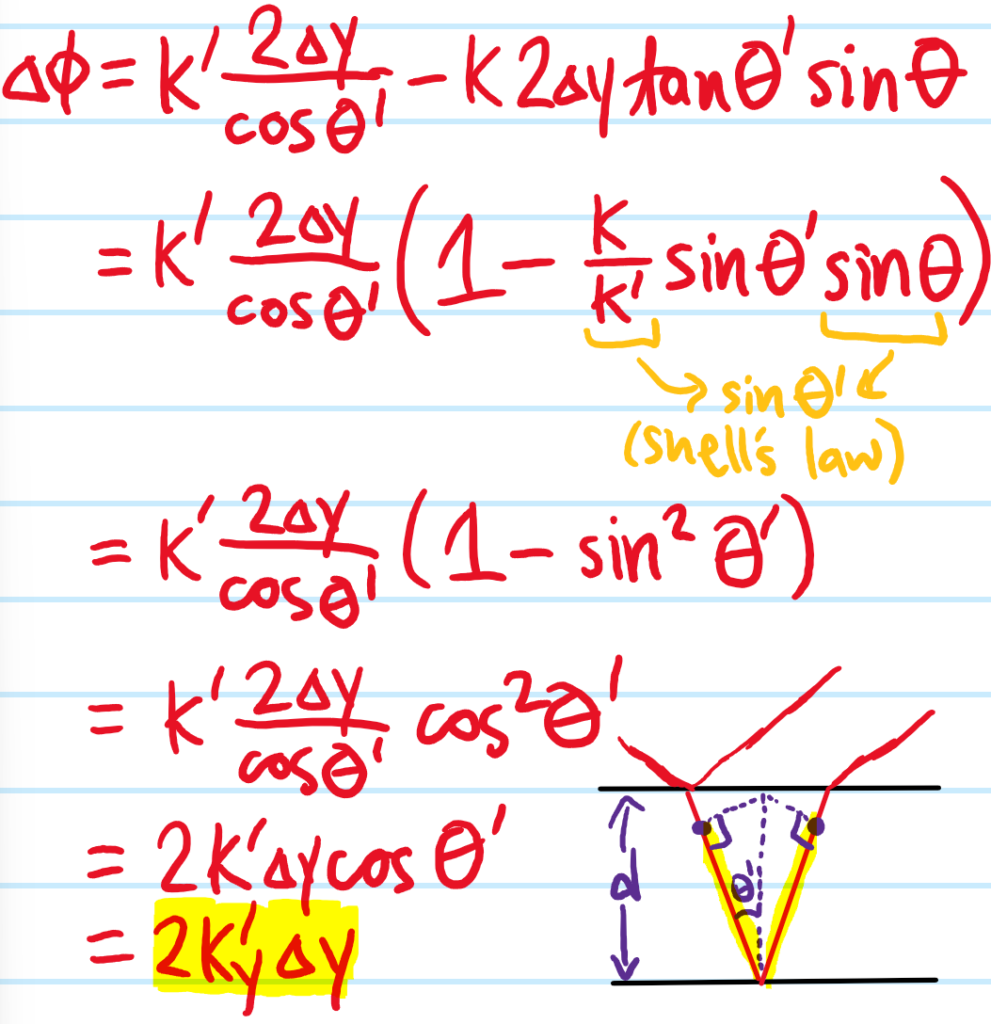 Δφ = k' 2Δy/cosθ' - k2Δy tanθ' sinθ
= k' 2Δy/cosθ' (1 - k/k' sinθ' sinθ)
sinθ'
(snell's law)
= k' 2Δy/cosθ' (1 - sin²θ')
= k' 2Δy/cosθ' cos²θ'
= 2k'Δy cosθ'
= 2k'yΔy
d
θ'